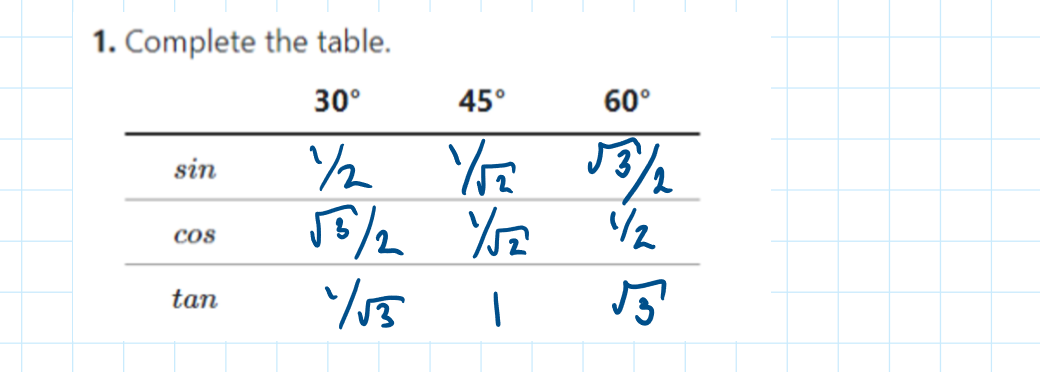 1. Complete the table.
30° 45° 60°
sin 1/2 1/√2 √3/2
cos √3/2 1/√2 1/2
tan 1/√3 1 √3